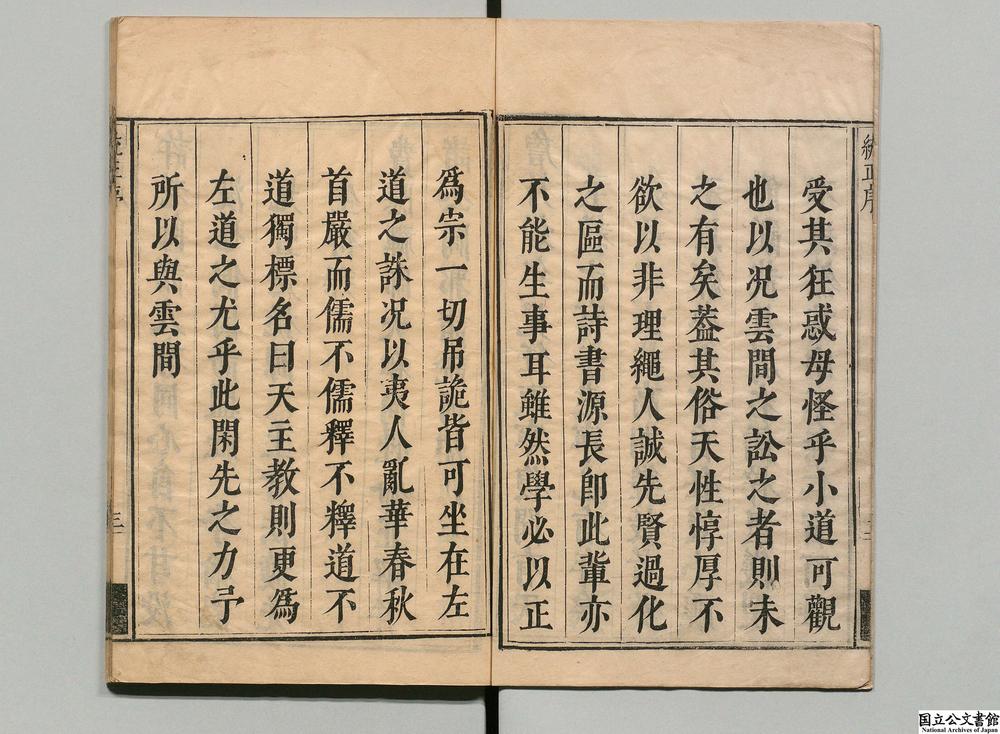 統正序
受其狂惑毋怪乎小道可觀
也以況雲間之訟之者則未
之有矣葢其俗天性惇厚不
欲以非理繩人誠先賢過化
之區而詩書源長卽此軰亦
不能生事耳雖然學必以正
爲宗一切吊詭皆可坐在左
道之誅况以夷人亂華春秋
首嚴而儒不儒釋不釋道不
道獨標名曰天主教則更爲
左道之尤乎此閑先之力予
所以與雲間
三
国立公文書館
National Archives of Japan